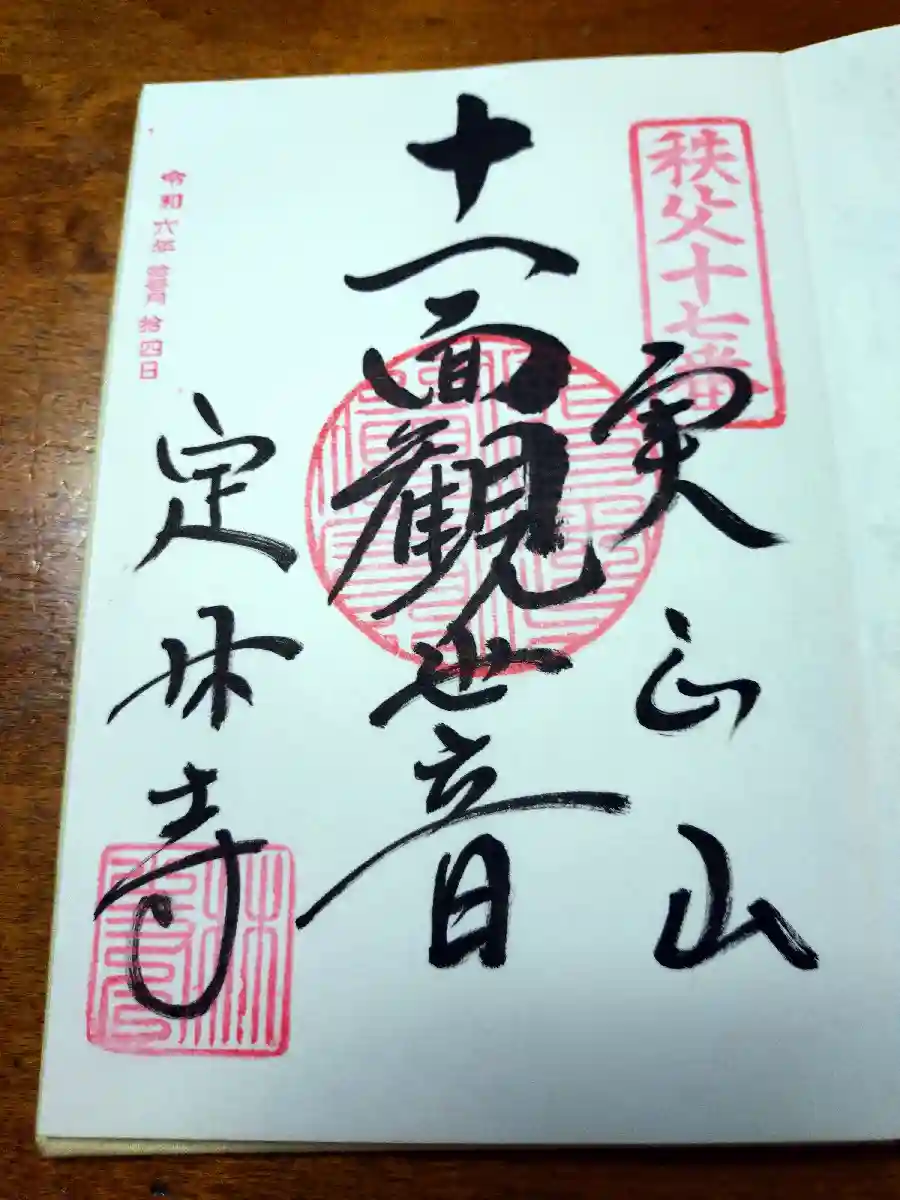 秩父十七番
実正山
十一面観世音
定林寺
令和六年
拾四日